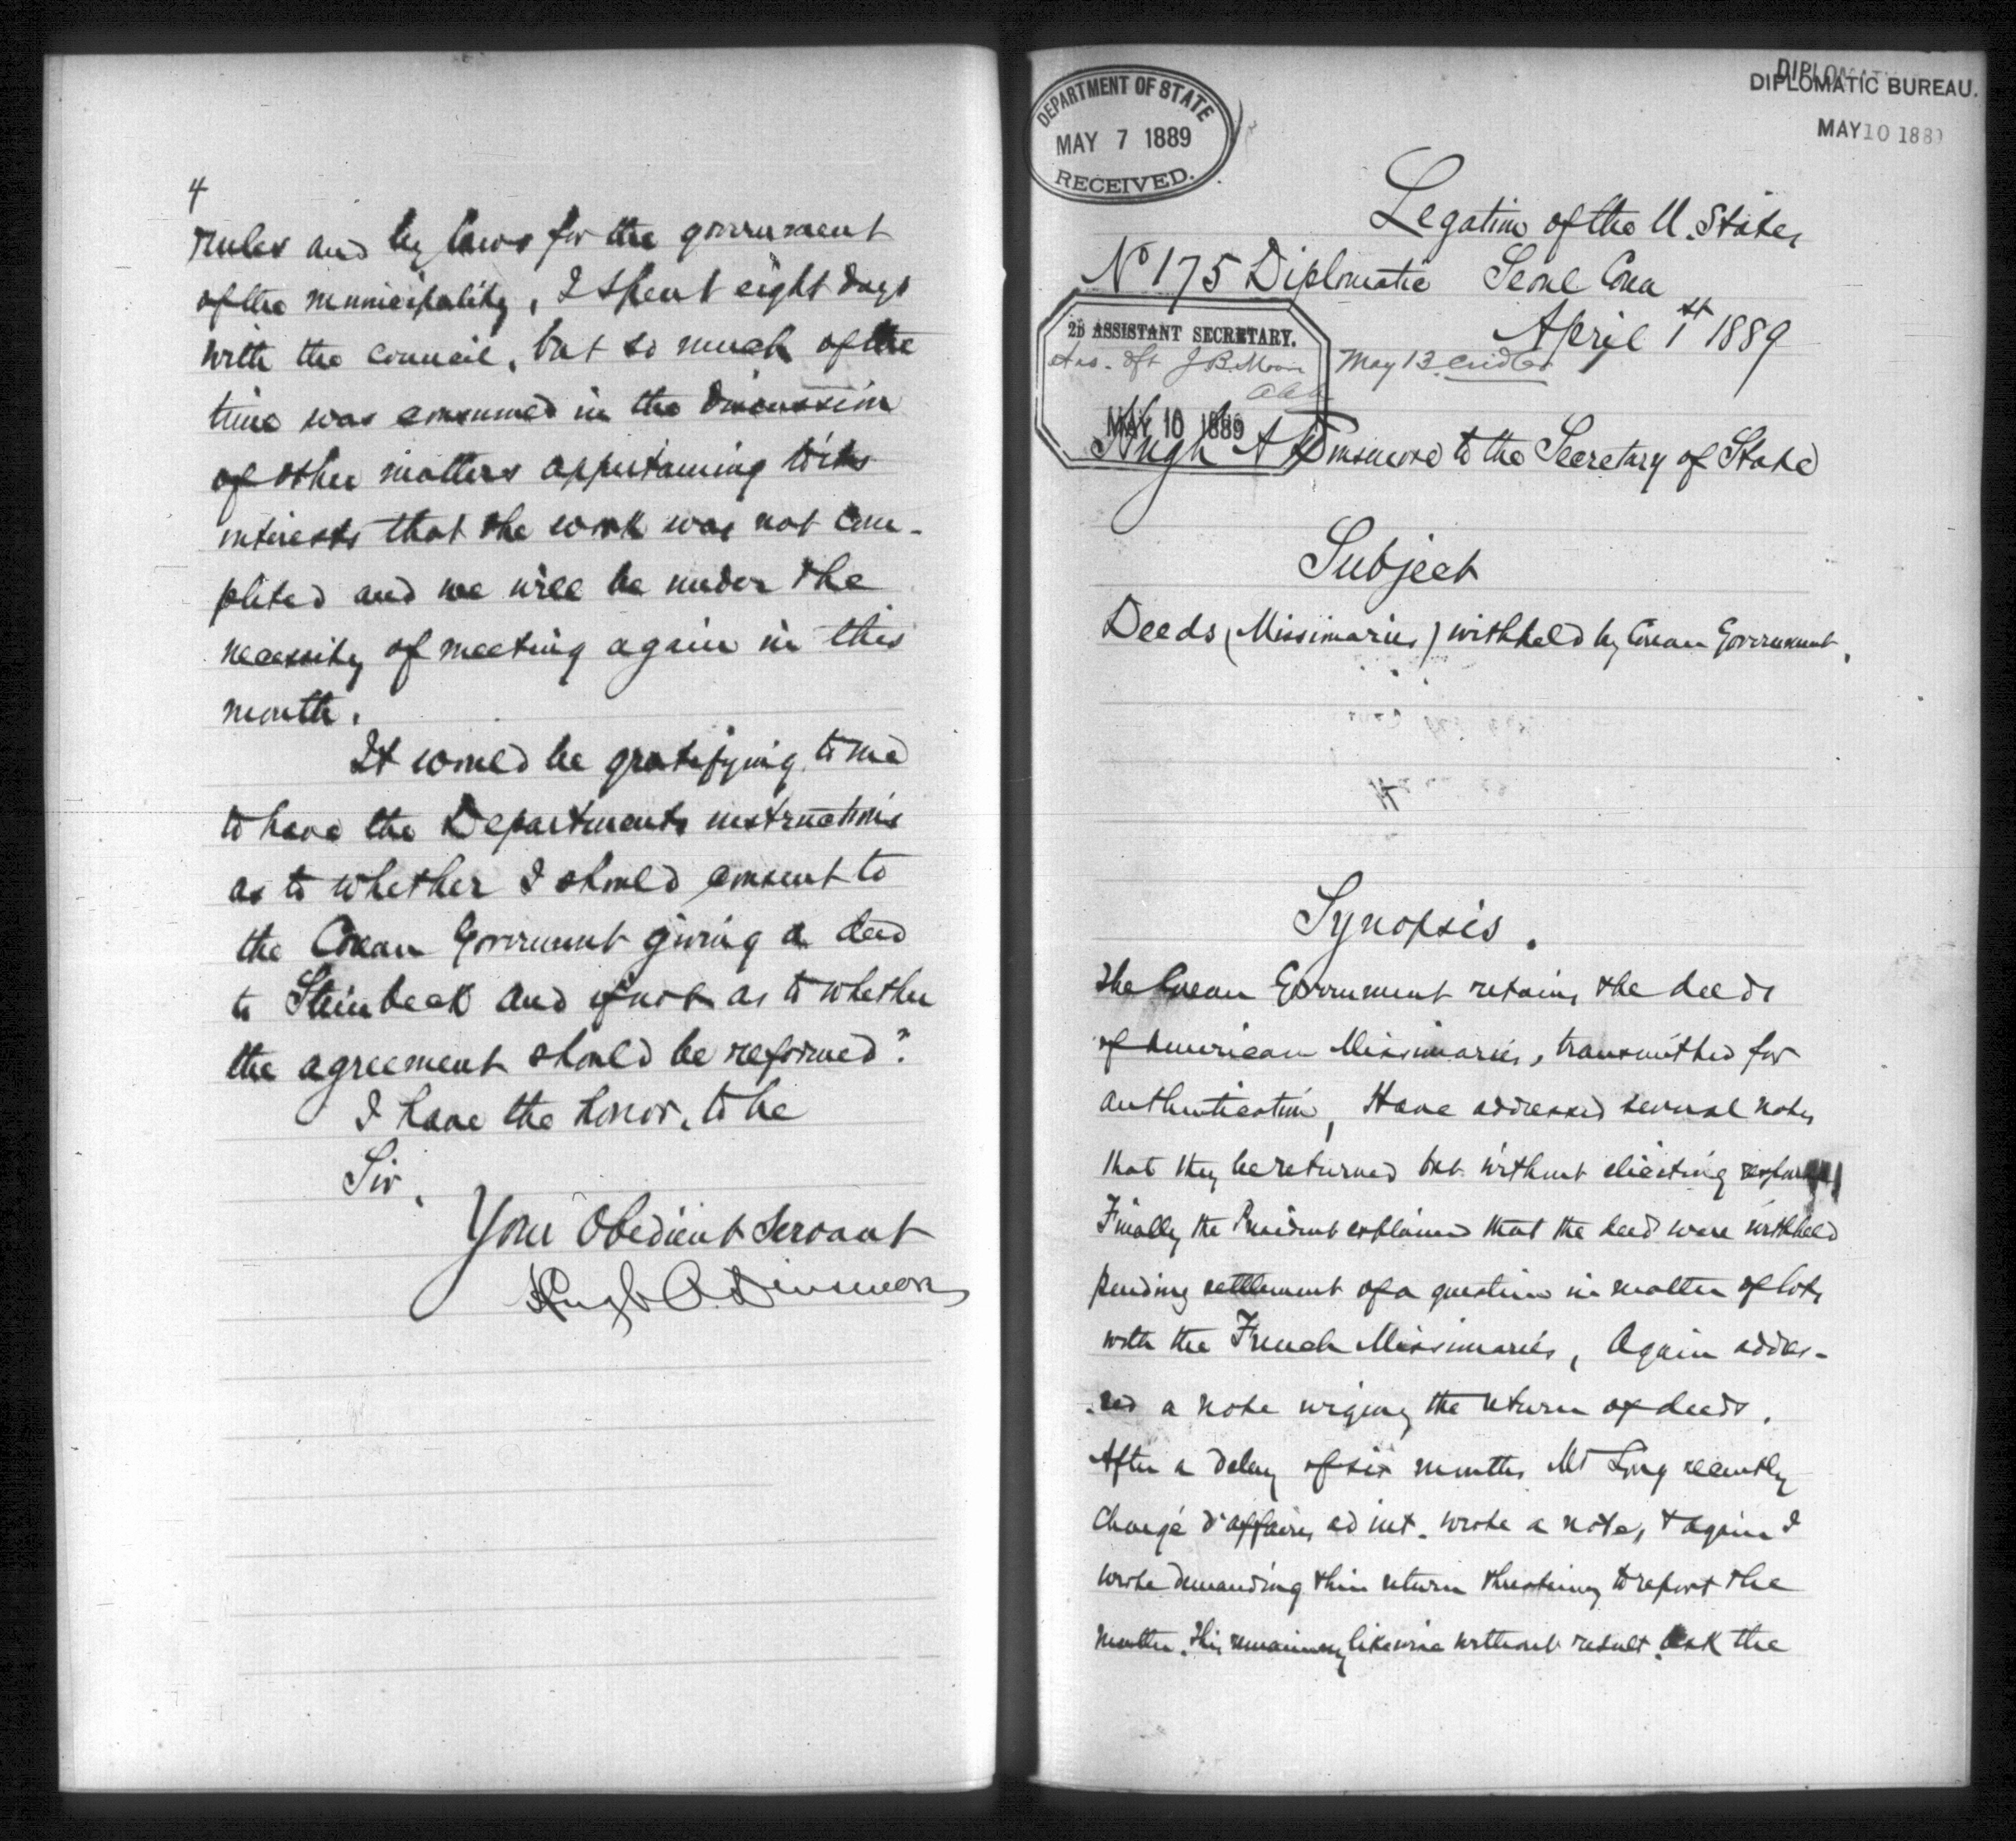 4
rules and by laws for the government
of the municipality, I spent eight days
with the council, but so much of the
time was consumed in the discussion
of other matters appertaining to its
interests that the work was not com-
pleted and we will be under the
necessity of meeting again in this
month.
It would be gratifying to me
to have the Departments instructions
as to whether I should consent to
the Corean Government giving a deed
to Steinbeck and if not as to whether
the agreement should be reformed?
I have the honor, to be
Sir,
Your Obedient Servant
Hugh A. Dinsmore
DEPARTMENT OF STATE
MAY 7 1889
RECEIVED.
DIPLOMATIC BUREAU.
MAY 10 1889
Legation of the U. States,
No 175 Diplomatic Seoul Corea
April 1st 1889
2D ASSISTANT SECRETARY.
Ans. dft J B. Moore May 13
MAY 10 1889
Hugh A Dinsmore to the Secretary of State
Subject
Deeds (Missionaries) withheld by Corean Government.
Synopsis.
The Corean Government retains the deeds
of American Missionaries, transmitted for
authentication, Have addressed several notes
that they be returned but without eliciting response
Finally the President explained that the deeds were withheld
pending settlement of a question in matter of lots
with the French Missionaries, Again addres-
sed a note urging the return of deeds.
After a delay of six months Mr Long recently
Chargé d'affaires ad int. wrote a note, & again I
wrote demanding their return threatening to report the
matter. This remaining likewise without result. Ask the